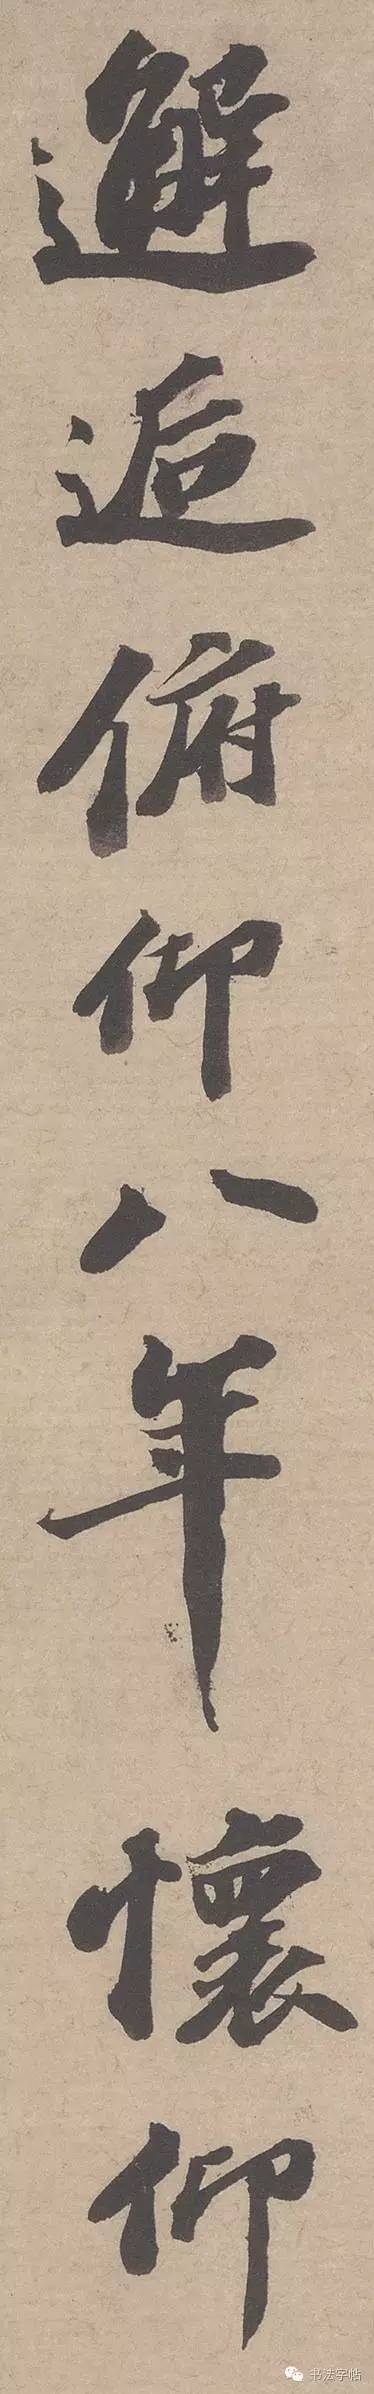 邂逅俯仰八年懷仰
书法字帖